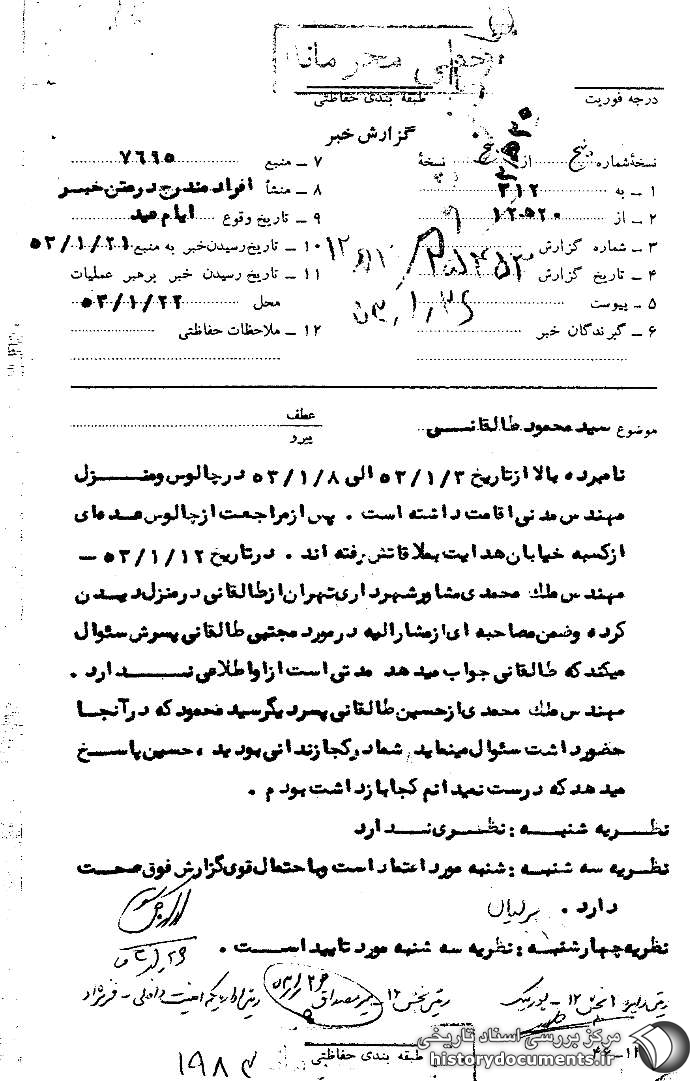 خیلی محرمانه
طبقه بندی حفاظتی
درجه فوریت
گزارش خبر
نسخهٔ شماره پنج از پنج نسخهٔ
۱ – به ۳۱۲
۲ – از ۱۲۰۵۲۰
۳ – شماره گزارش
۴ – تاریخ گزارش
۵ – پیوست
۶ – گیرندگان خبر
۷ – منبع ۷۶۹۵
۸ – منشأ افراد مندرج در متن خبر
۹ – تاریخ وقوع ایام عید
۱۰ – تاریخ رسیدن خبر به منبع ۵۳/۱/۲۱
۱۱ – تاریخ رسیدن خبر برهبر عملیات
محل ۵۳/۱/۲۲
۱۲ – ملاحظات حفاظتی
موضوع سید محمود طالقانی
عطف
پیرو
نامبرده بالا از تاریخ ۵۳/۱/۳ الی ۵۳/۱/۸ در چالوس و منزل
مهندس مدنی اقامت داشته است . پس از مراجعت از چالوس عده‌ای
از کسبه خیابان هدایت بملاقاتش رفته اند . در تاریخ ۵۳/۱/۱۲ –
مهندس ملك محمدی مشاور شهرداری تهران از طالقانی در منزل دیدن
کرده و ضمن مصاحبه ای از مشارالیه در مورد مجتبی طالقانی پسرش سئوال
میکند که طالقانی جواب میدهد مدتی است از او اطلاعی ندارد .
مهندس ملك محمدی از حسین طالقانی پسر دیگر سید محمود که در آنجا
حضور داشت سئوال مینماید شما در کجا زندانی بودید ، حسین پاسخ
میدهد که درست نمیدانم کجا بازداشت بودم .
نظریه شنبه : نظری ندارد
نظریه سه شنبه : شنبه مورد اعتماد است و باحتمال قوی گزارش فوق صحت
دارد .
نظریه چهارشنبه : نظریه سه شنبه مورد تایید است .
رئیس بخش ۱۲ –
طبقه بندی حفاظتی
۱۹۸۴
مرکز بررسی اسناد تاریخی
historydocuments.ir